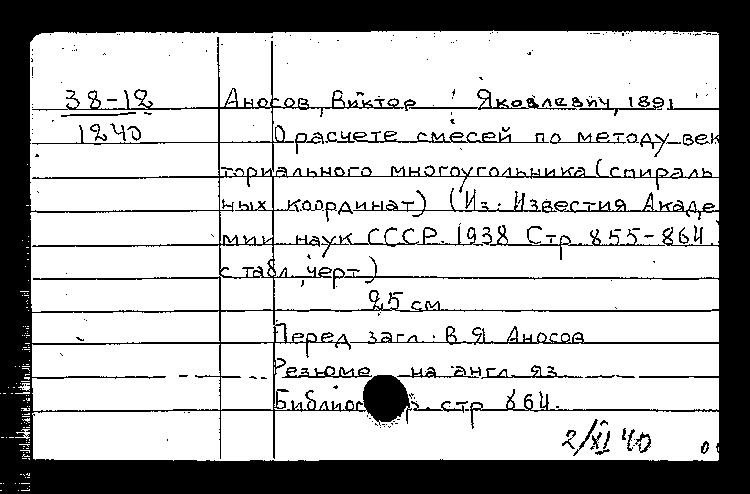 38-12 Аносов, Виктор Яковлевич, 1891
1240 О расчете смесей по методу век
ториального многоугольника (спираль
ных координат) (Из: Известия Акаде
мии наук СССР. 1938 Стр. 855-864.
с табл, черт)
25 см
Перед загл: В Я Аносов
Резюме на англ. яз.
стр 864.
2/XI 40